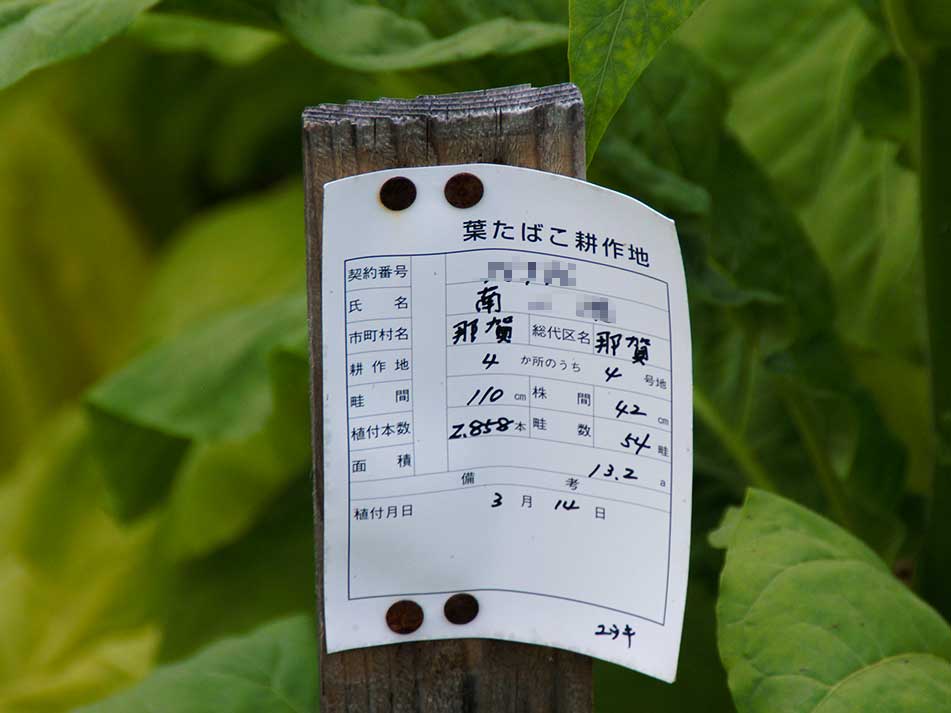 葉たばこ耕作地
契約番号
氏名 南
市町村名 那賀 総代区名 那賀
耕作地 4 か所のうち 4 号地
畦間 110 cm 株間 42 cm
植付本数 2.858 本 畦数 54 畦
面積 13.2 a
備考
植付月日 3 月 14 日